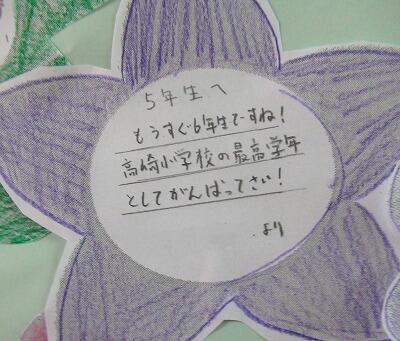 5年生へ
もうすぐ6年生ですね!
高崎小学校の最高学年
としてがんばってさい!
より